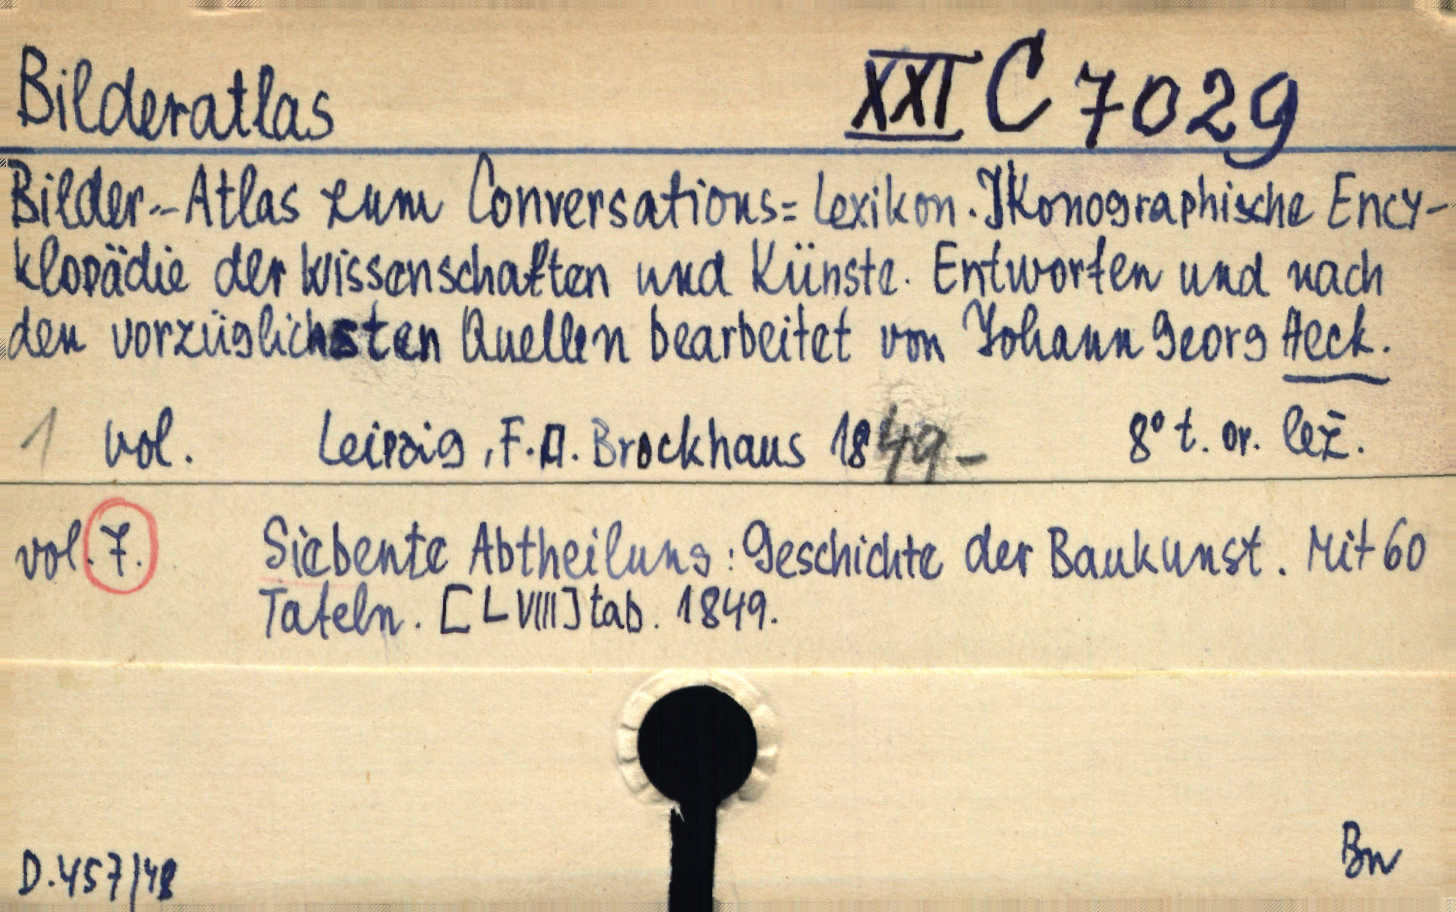 Bilderatlas
XXI C 7029
Bilder-Atlas zum Conversations=Lexikon. Ikonographische Ency-
klopädie der Wissenschaften und Künste. Entworfen und nach
den vorzüglichsten Quellen bearbeitet von Johann Georg Heck.
1 vol. Leipzig, F.A. Brockhaus 1849- 8° t. or. lež.
vol. 7. Siebente Abtheilung: Geschichte der Baukunst. Mit 60
Tafeln. [LVIII] tab. 1849.
D.457/48
Bn